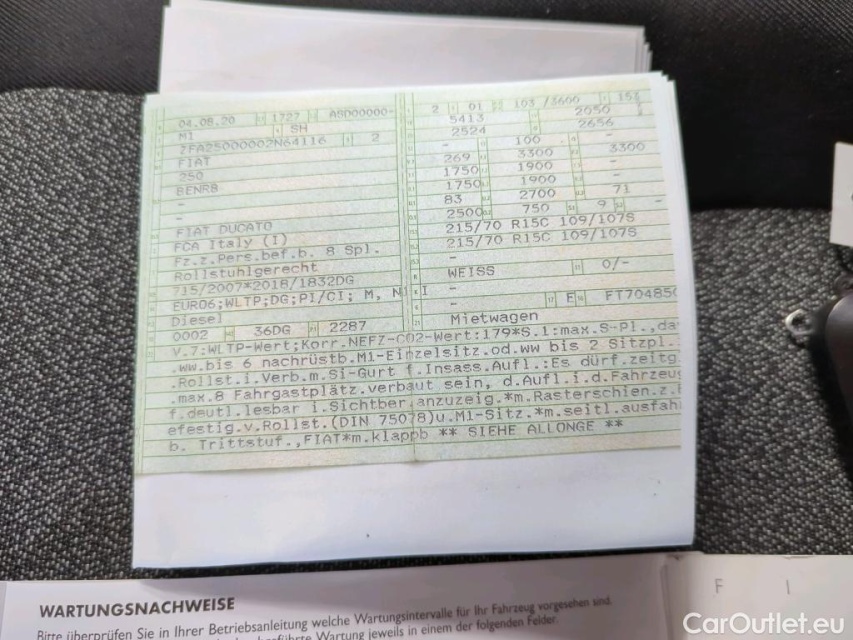 04.08.20 1727 ASD00000- 2 01 103 /3600
M1 SH 5413 2050
ZFA25000002N64116 2 2524 2656
FIAT - 100 -
250 269 3300 3300
BENRB 1750 1900 -
- 1750 1900 -
- 83 2700 71
FIAT DUCATO 2500 750 9 -
FCA Italy (I) 215/70 R15C 109/107S
Fz.z.Pers.bef.b. 8 Spl. 215/70 R15C 109/107S
Rollstuhlgerecht -
715/2007*2018/1832DG WEISS 0/-
EURO6;WLTP;DG;PI/CI; M, N I -
Diesel - E FT70485
0002 36DG 2287 Mietwagen
V.7:WLTP-Wert;Korr.NEFZ-CO2-Wert:179*S.1:max.S-Pl.,da
.ww.bis 6 nachrüstb.M1-Einzelsitz.od.ww bis 2 Sitzpl.
.Rollst.i.Verb.m.Si-Gurt f.Insass.Aufl.:Es dürf.zeitg
.max.8 Fahrgastplätz.verbaut sein, d.Aufl.i.d.Fahrzeug
f.deutl.lesbar i.Sichtber.anzuzeig.*m.Rasterschien.z.B
efestig.v.Rollst.(DIN 75078)u.M1-Sitz.*m.seitl.ausfah
b. Trittstuf.,FIAT*m.klappb ** SIEHE ALLONGE **
WARTUNGSNACHWEISE
Bitte überprüfen Sie in Ihrer Betriebsanleitung welche Wartungsintervalle für Ihr Fahrzeug vorgesehen sind.
Wartung jeweils in einem der folgenden Felder.
F I
CarOutlet.eu